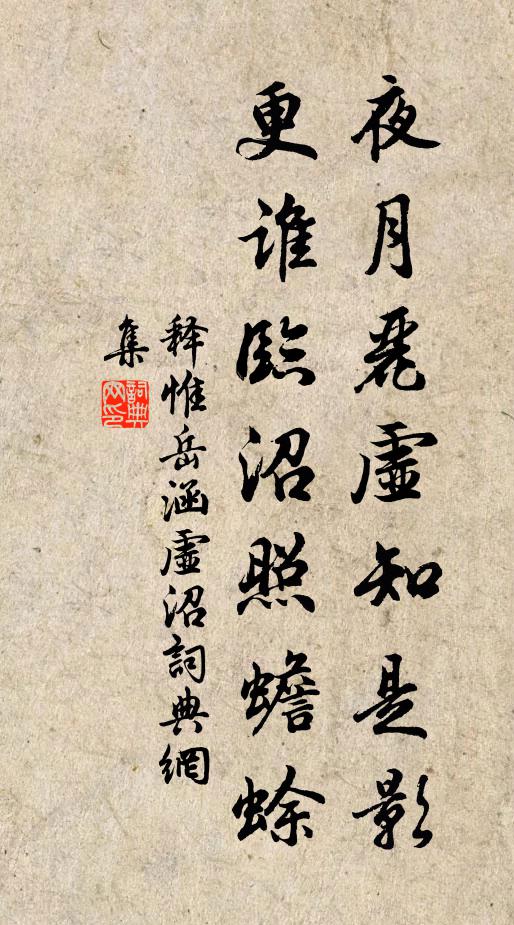 夜月麗虛知是影
更誰臨沼照蟾蜍
釋惟岳涵虛沼詞典網
集
詞典網印